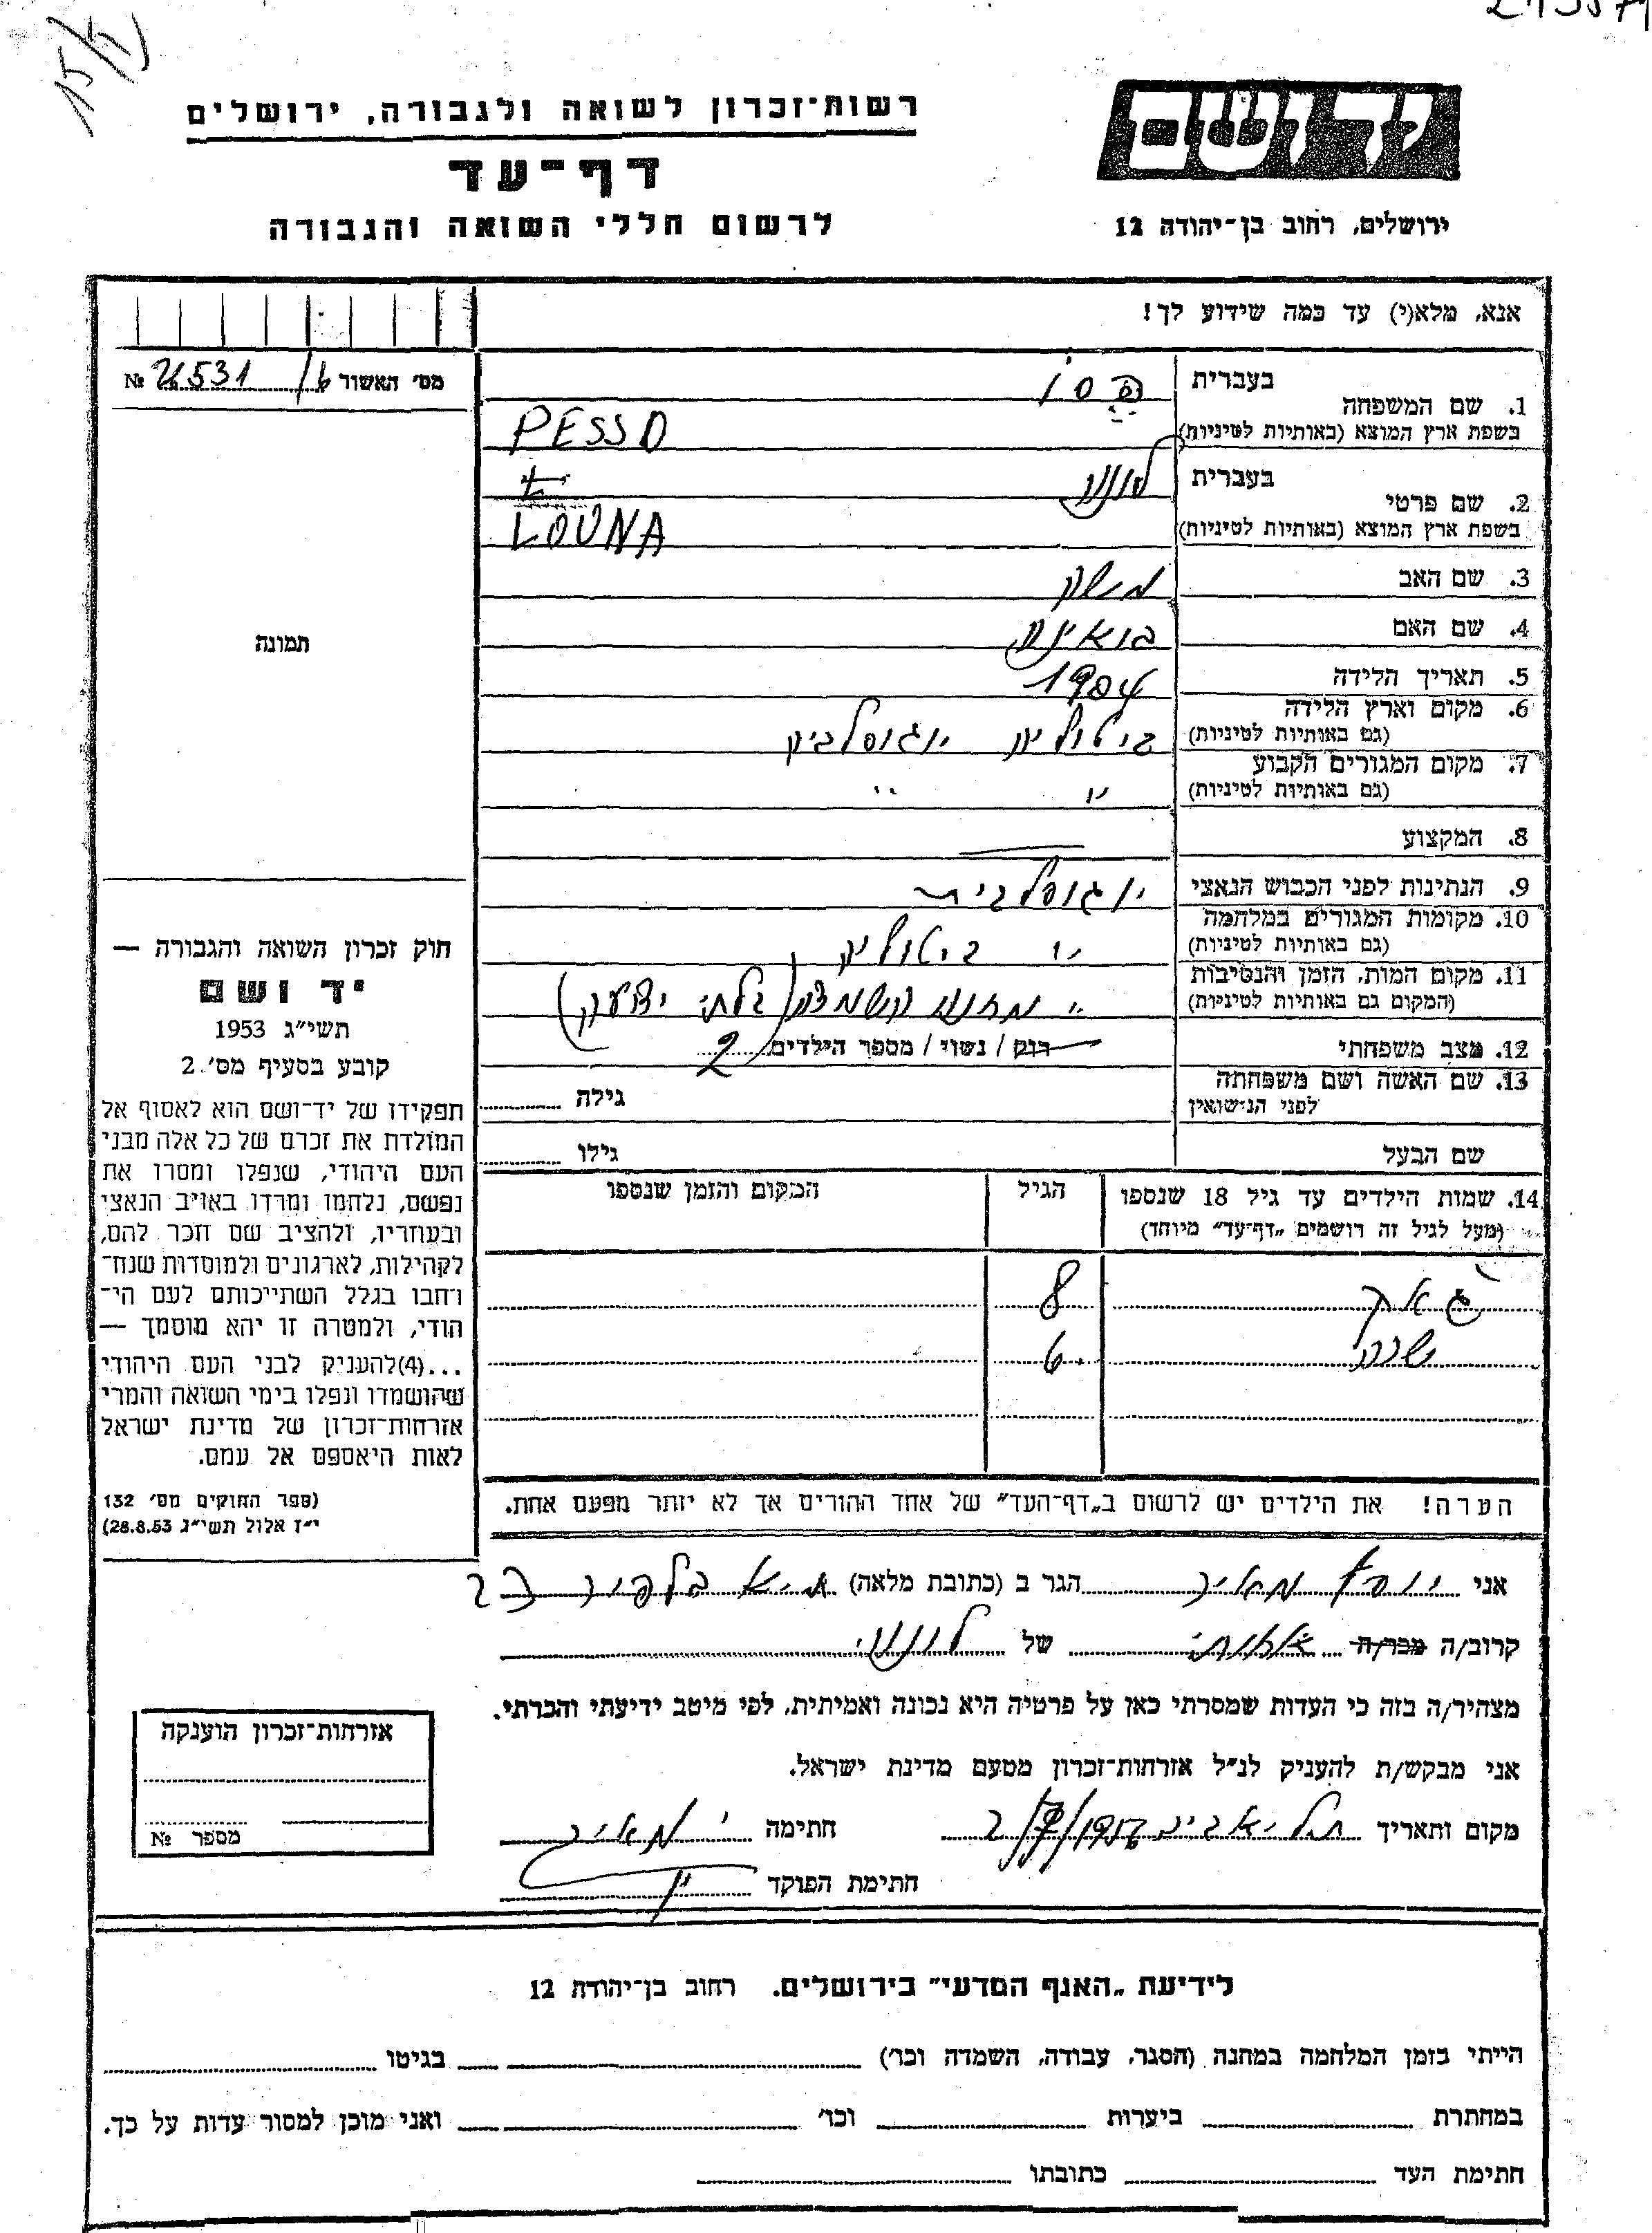 15/4
יד ושם
רשות־זכרון לשואה ולגבורה, ירושלים
דף־עד
לרשום חללי השואה והגבורה
ירושלים, רחוב בן־יהודה 12
אנא, מלא(י) עד כמה שידוע לך!
מס' האשור № 26531
1. שם המשפחה
בעברית פסו
בשפת ארץ המוצא (באותיות לטיניות) PESSO
2. שם פרטי
בעברית לונה
בשפת ארץ המוצא (באותיות לטיניות) LOUNA
3. שם האב משה
4. שם האם
תמונה
5. תאריך הלידה 1904
6. מקום וארץ הלידה
(גם באותיות לטיניות) ביטוליה יוגוסלביה
7. מקום המגורים הקבוע
(גם באותיות לטיניות) " "
8. המקצוע —
9. הנתינות לפני הכבוש הנאצי יוגוסלבית
10. מקומות המגורים במלחמה
(גם באותיות לטיניות) " ביטוליה
11. מקום המות, הזמן והנסיבות
(המקום גם באותיות לטיניות) " מחנה השמדה (בלתי ידוע)
12. מצב משפחתי רוק / נשוי / מספר הילדים 2
13. שם האשה ושם משפחתה
לפני הנישואין
גילה
שם הבעל
גילו
14. שמות הילדים עד גיל 18 שנספו
(מעל לגיל זה רושמים „דף־עד" מיוחד)
הגיל
המקום והזמן שנספו
ז'אק 8
שרה 6
הערה! את הילדים יש לרשום ב„דף־העד" של אחד ההורים אך לא יותר מפעם אחת.
חוק זכרון השואה והגבורה —
יד ושם
תשי"ג 1953
קובע בסעיף מס' 2
תפקידו של יד־ושם הוא לאסוף אל
המולדת את זכרם של כל אלה מבני
העם היהודי, שנפלו ומסרו את
נפשם, נלחמו ומרדו באויב הנאצי
ובעוזריו, ולהציב שם וזכר להם,
לקהילות, לארגונים ולמוסדות שנח־
רבו בגלל השתייכותם לעם הי־
הודי, ולמטרה זו יהא מוסמך —
...(4)להעניק לבני העם היהודי
שהושמדו ונפלו בימי השואה והמרי
אזרחות־זכרון של מדינת ישראל
לאות היאספם אל עמם.
(ספר החוקים מס' 132
י"ז אלול תשי"ג 28.8.53)
אני יוסף מאיר הגר ב (כתובת מלאה) ת"א בלפור 23
קרוב/ה מכר/ה אחותי של לונה
מצהיר/ה בזה כי העדות שמסרתי כאן על פרטיה היא נכונה ואמיתית, לפי מיטב ידיעתי והכרתי.
אני מבקש/ת להעניק לנ"ל אזרחות־זכרון מטעם מדינת ישראל.
מקום ותאריך תל אביב חתימה י מאיר
חתימת הפוקד
אזרחות־זכרון הוענקה
מספר №
לידיעת „האגף המדעי" בירושלים. רחוב בן־יהודה 12
הייתי בזמן המלחמה במחנה (הסגר, עבודה, השמדה וכו') בגיטו
במחתרת ביערות וכו' ואני מוכן למסור עדות על כך.
חתימת העד כתובתו